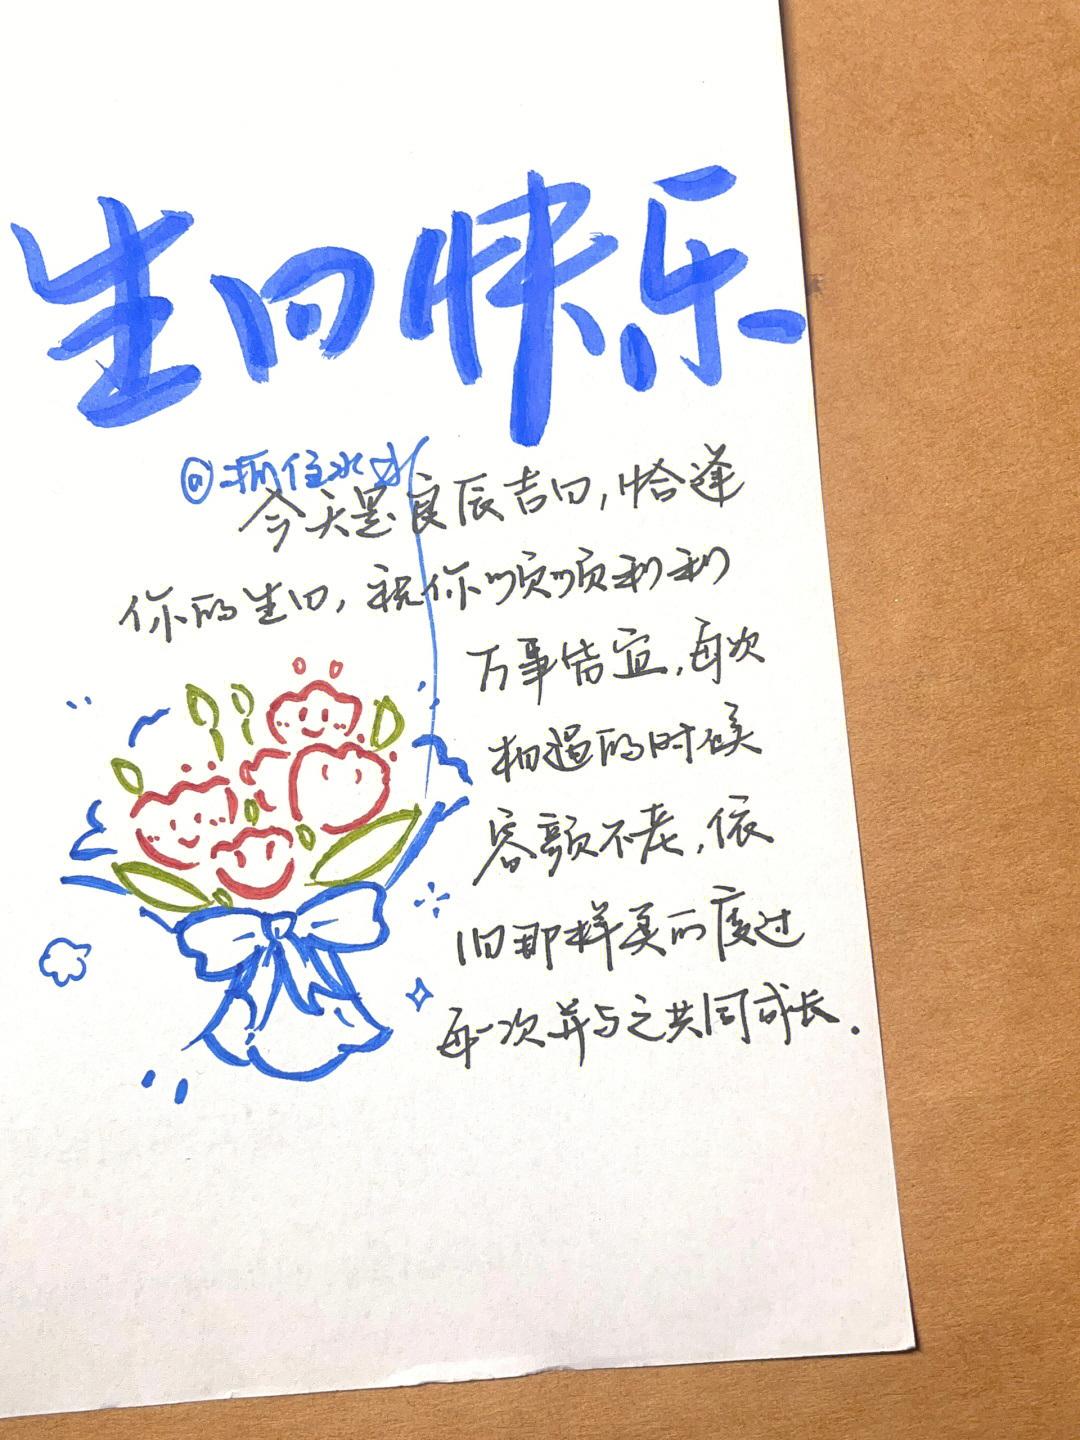 生日快乐
@抓住水水
今天是良辰吉日，恰逢
你的生日，祝你顺顺利利
万事皆宜，每次
相遇的时候
容颜不老，依
旧那样美的度过
每一次并与之共同成长.